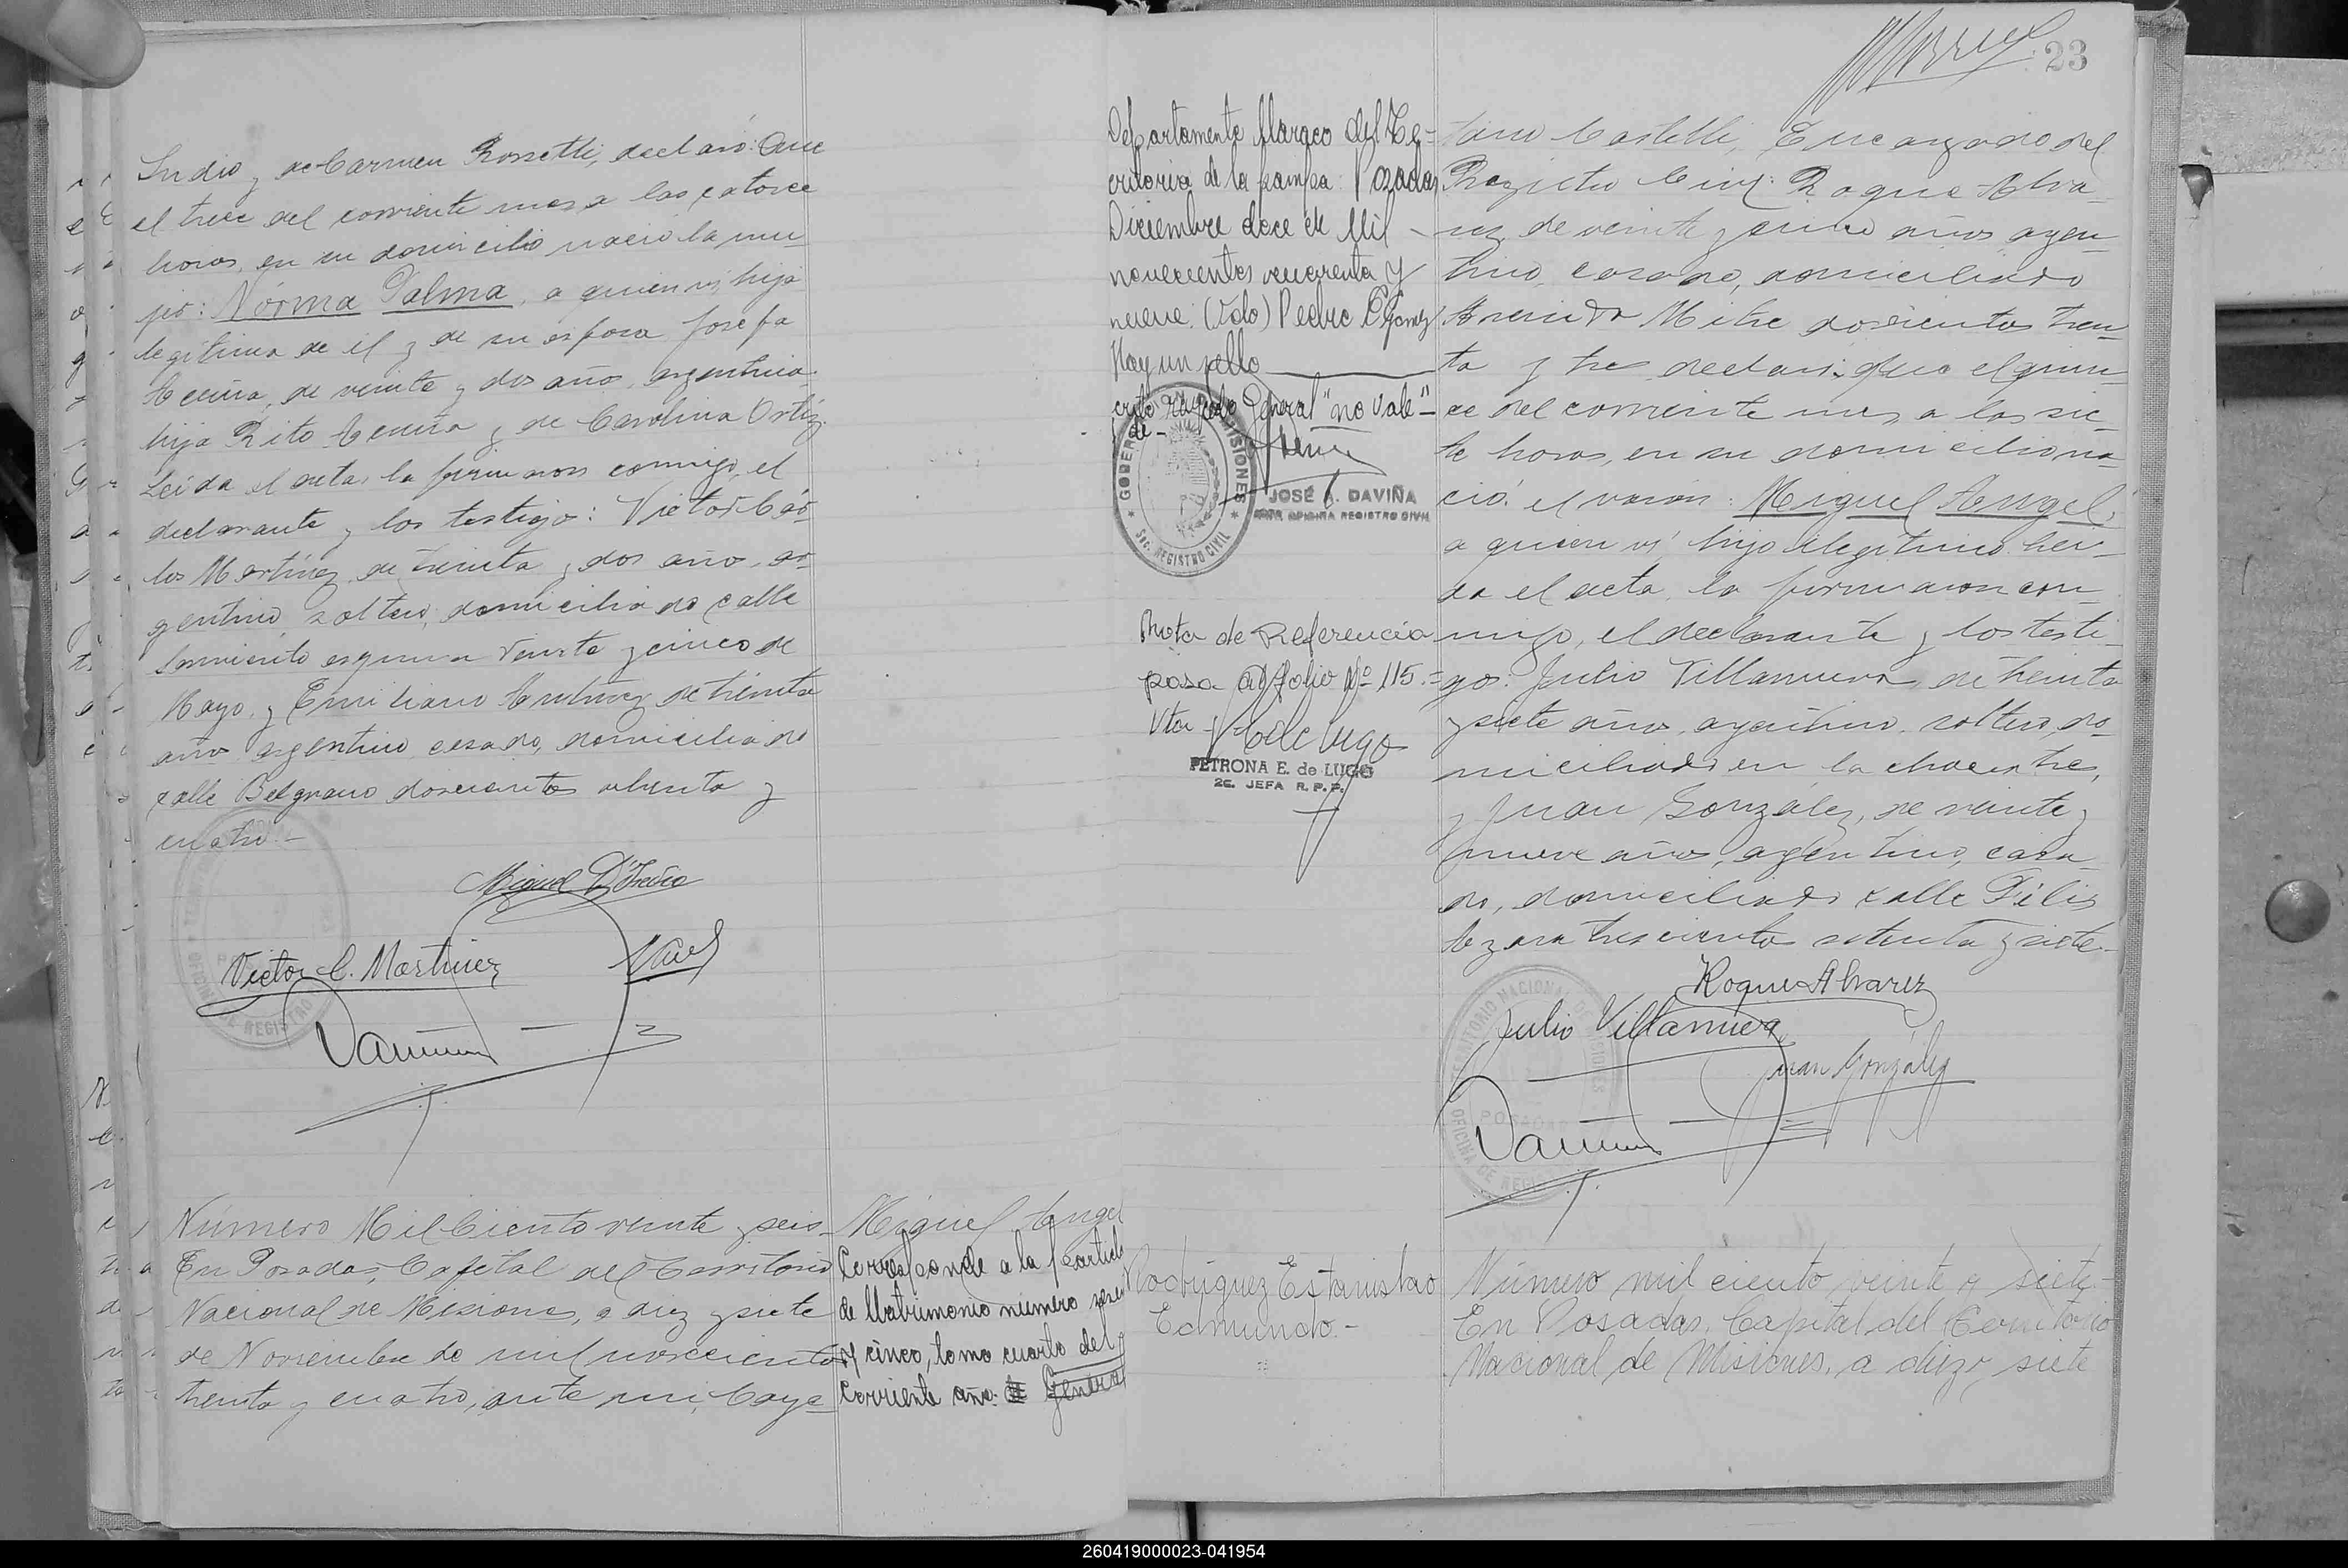 Indio, y de Carmen Rossetti, declaró: Que
el trece del corriente mes a las catorce
horas, en su domicilio nació la mu-
jer: Norma Palma, a quien vi, hija
legítima de él y de su esposa Josefa
Acuña, de veinte y dos año, argentina
hija Rito Acuña y de Carolina Ortíz.
Leída el acta, la firmaron conmigo, el
declarante y los testigo: Victor Car-
los Martínez, de treinta y dos año, ar-
gentino, soltero, domiciliado calle
Sarmiento esquina Veinte y cinco de
Mayo, y Emiliano de treinta
año argentino, casado, domiciliado
calle Belgrano doscientos ochenta y
cuatro.-
Victor C. Martinez
Número Mil Ciento veinte y seis-
En Posadas, Capital del Territorio
Nacional de Misiones, a diez y siete
de Noviembre de mil novecientos
treinta y cuatro, ante mi, Caye-
Miguel Angel
Corresponde a la partida
de Matrimonio número
y cinco, tomo cuarto del
Corriente año. General
23
Departamento Maraco del Te-
rritorio de la pampa: Posadas
Diciembre doce de Mil
novecientos cuarenta y
nueve. (Fdo) Pedro E. Gomez
Hay un sello
General "no vale"-
GOBERNACION MISIONES
SEC. REGISTRO CIVIL
JOSÉ A. DAVIÑA
REGISTRO CIVIL
Nota de Referencia
pasa al folio Nº 115.=
Vta
PETRONA E. de LUGO
2º. JEFA R. P. P.
tano Castelli, Encargado del
Registro Civil: Roque Alva-
rez, de veinte y cinco años, argen-
tino, casado, domiciliado
Avenida Mitre doscientos trein-
ta y tres declaró: Que el quin-
ce del corriente mes, a las sie-
te horas, en su domicilio na-
ció el varón: Miguel Angel,
a quien vi, hijo ilegítimo. Leí-
da el acta, la firmaron con-
migo, el declarante y los testi-
gos: Julio Villanueva, de treinta
y siete años, argentino, soltero, do-
miciliado en la chacra tres,
y Juan González, de veinte y
nueve años, argentino, casa-
do, domiciliado calle Félix
de Azara trescientos setenta y siete.-
Roque Alvarez
Julio Villanueva
Juan González
TERRITORIO NACIONAL DE MISIONES
POSADAS
OFICINA DE REGISTRO
Rodriguez Estanislao
Edmundo.-
Número mil ciento veinte y siete-
En Posadas, Capital del Territorio
Nacional de Misiones, a diez y siete
260419000023-041954